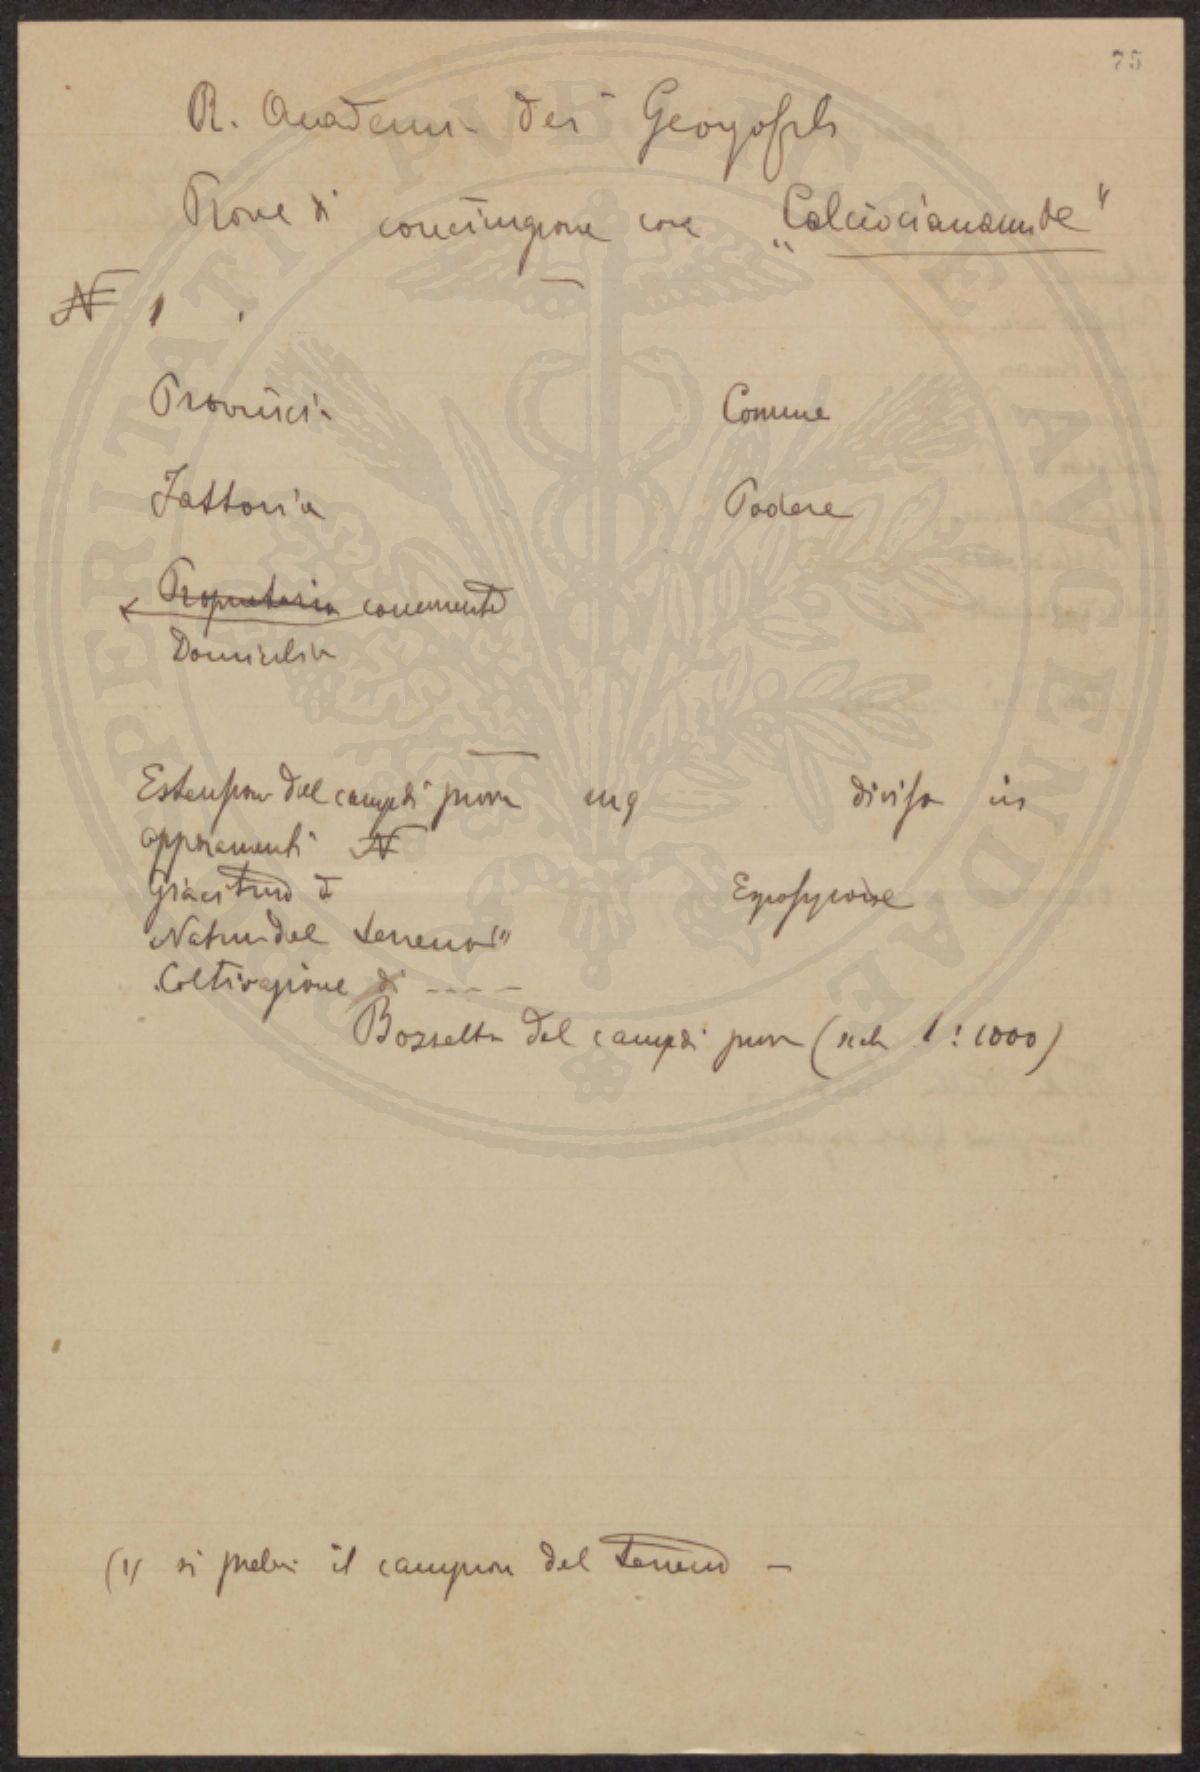 75
R. Accademia dei Georgofili
Prove di concimazione con "Calciocianamide"
N 1
Provincia Comune
Fattoria Podere
Proprietario concimento
Domicilio
Estensione del campo di prova mq diviso in
appezzamenti N
Giacitura Esposizione
Natura del terreno (1)
Coltivazione di ----
Bozzetto del campo di prova (scala 1:1000)
(1) si prelevi il campione del terreno —
PROSPERITATI PVBLICAE AVGENDAE